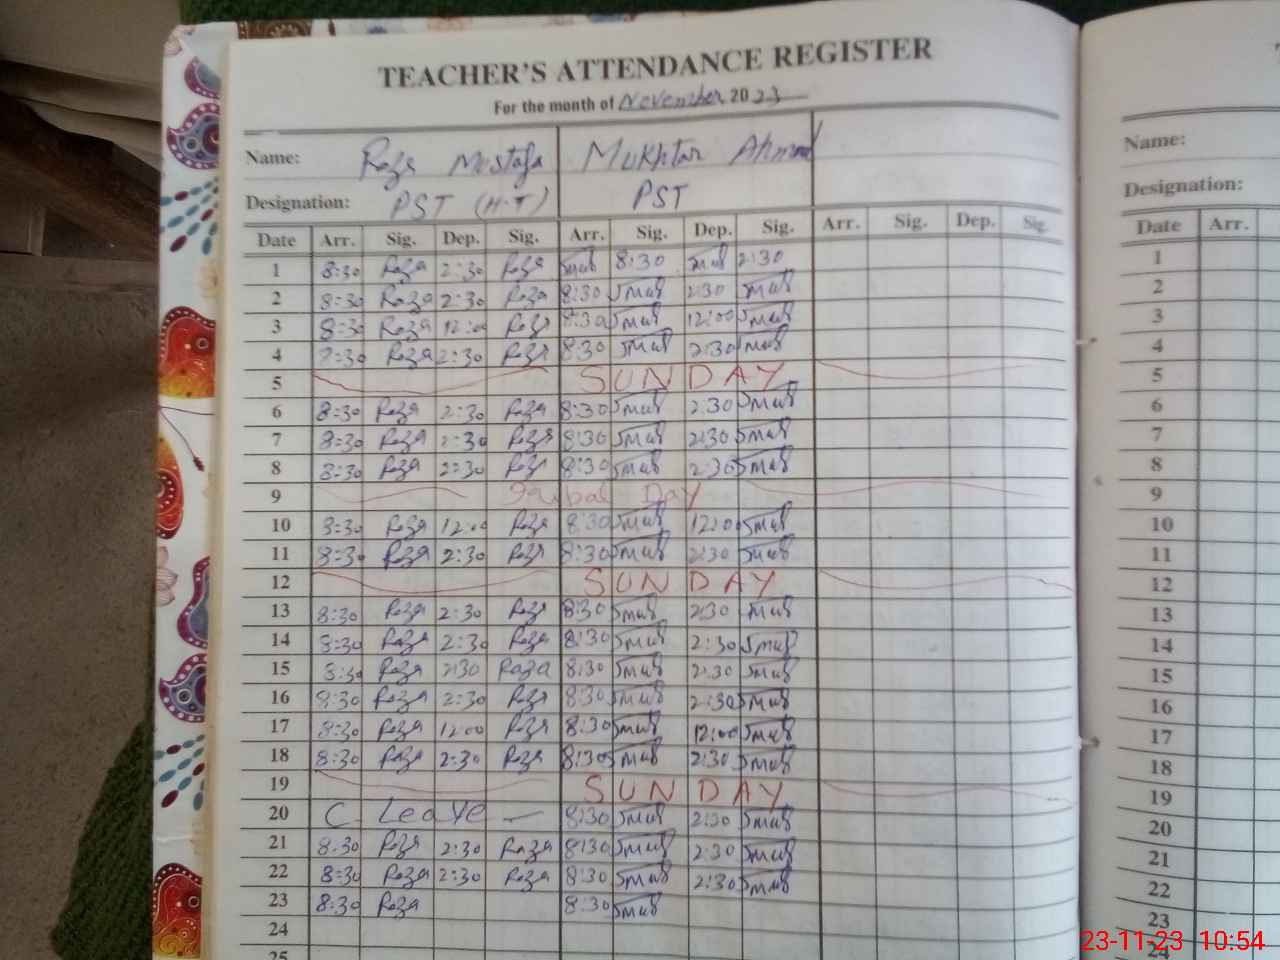 TEACHER'S ATTENDANCE REGISTER
For the month of November 2023
Name: Raza Mustafa Mukhtar Ahmad
Designation: PST (H-T) PST
Date Arr. Sig. Dep. Sig. Arr. Sig. Dep. Sig. Arr. Sig. Dep. Sig.
1 8:30 Raza 2:30 Raza 8:30 2:30
2 8:30 Raza 2:30 Raza 8:30 2:30
3 8:30 Raza 12:00 Raza 8:30 12:00
4 8:30 Raza 2:30 Raza 8:30 2:30
5 SUNDAY
6 8:30 Raza 2:30 Raza 8:30 2:30
7 8:30 Raza 2:30 Raza 8:30 2:30
8 8:30 Raza 2:30 Raza 8:30 2:30
9 Day
10 8:30 Raza 12:00 Raza 8:30 12:00
11 8:30 Raza 2:30 Raza 8:30 2:30
12 SUNDAY
13 8:30 Raza 2:30 Raza 8:30 2:30
14 8:30 Raza 2:30 Raza 8:30 2:30
15 8:30 Raza 2:30 Raza 8:30 2:30
16 8:30 Raza 2:30 Raza 8:30 2:30
17 8:30 Raza 12:00 Raza 8:30 12:00
18 8:30 Raza 2:30 Raza 8:30 2:30
19 SUNDAY
20 C. Leave 8:30 2:30
21 8:30 Raza 2:30 Raza 8:30 2:30
22 8:30 Raza 2:30 Raza 8:30 2:30
23 8:30 Raza 8:30
24
25
Name:
Designation:
Date Arr.
1
2
3
4
5
6
7
8
9
10
11
12
13
14
15
16
17
18
19
20
21
22
23
24
23-11-23 10:54